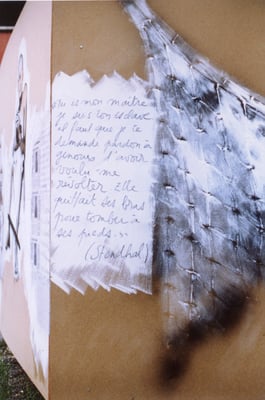 tu es mon maître
je suis ton esclave
il faut que je te
demande pardon à
genoux d'avoir
voulu me
revolter Elle
quittait ses bras
pour tomber à
ses pieds...
(Stendhal)